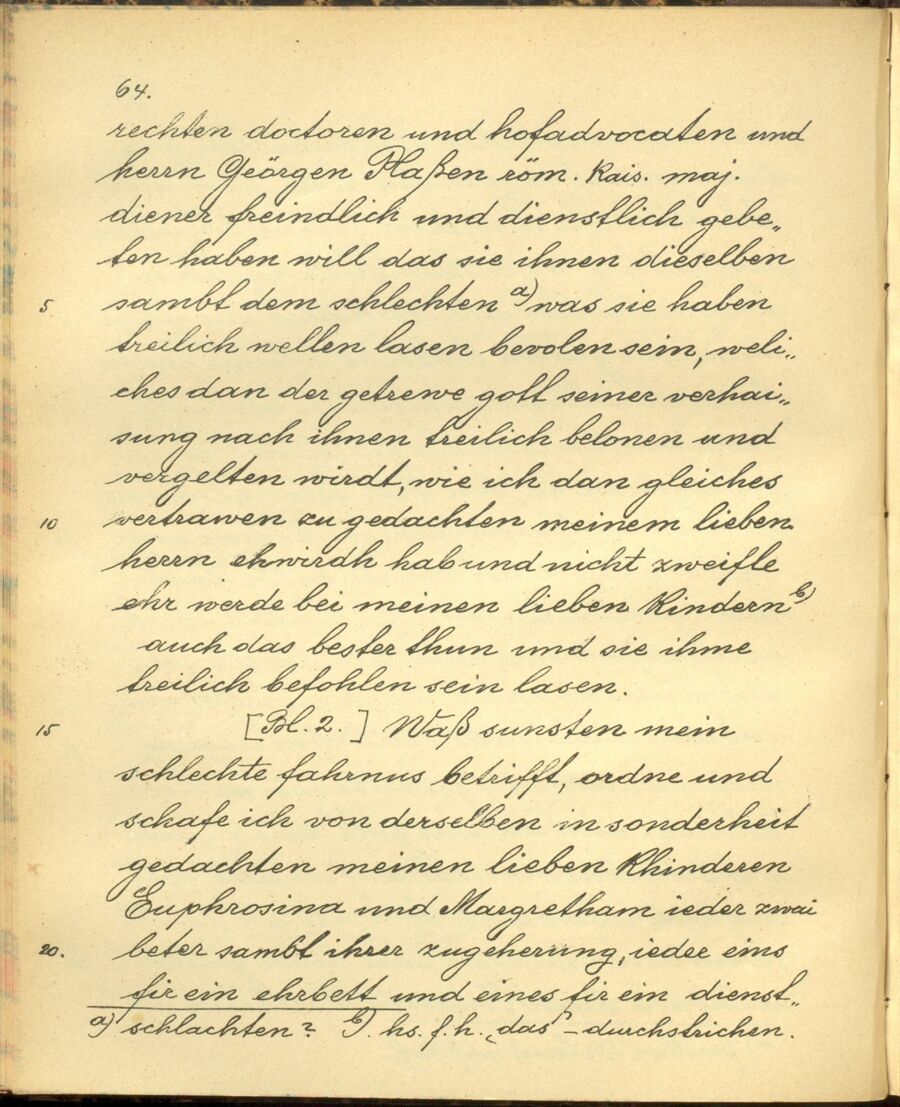 64.
rechten doctoren und hofadvocaten und
herrn Geörgen Plaßen röm. Kais. maj.
diener freindlich und dienstlich gebe„
ten haben will das sie ihnen dieselben
5 sambt dem schlechten a) was sie haben
treilich wellen lasen bevolen sein, weli„
ches dan der getrewe gott seiner verhai„
sung nach ihnen treilich belonen und
vergelten wirdt, wie ich dan gleiches
10 vertrawen zu gedachten meinem lieben
herrn ehwirdh hab und nicht zweifle
ehr werde bei meinen lieben Kindern b)
auch das bester thun und sie ihme
treilich befohlen sein lasen.
15 [Bl. 2.] Waß sunsten mein
schlechte fahrnus betrifft, ordne und
schafe ich von derselben in sonderheit
gedachten meinen lieben Khinderen
Euphrosina und Margretham ieder zwai
20. beter sambt ihrer zugeherung, ieder eins
fir ein ehrbett und eines fir ein dienst„
a) schlachten? b). hs. f. h. „das" – durchstrichen.